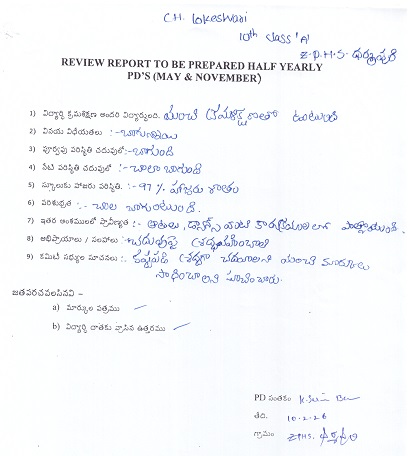 CH. Lokeswari
10th class 'A'
Z.P.H.S-ధర్మపురి
REVIEW REPORT TO BE PREPARED HALF YEARLY
PD'S (MAY & NOVEMBER)
1) విద్యార్థి క్రమశిక్షణ అందరి విద్యార్థులది. మంచి క్రమశిక్షణతో ఉంటుంది
2) వినయ విధేయతలు :- బాగున్నాయి
3) పూర్వపు పరిస్థితి చదువులో:- బాగుంది
4) నేటి పరిస్థితి చదువులో :- చాలా బాగుంది
5) స్కూలుకు హాజరు పరిస్థితి. :- 97% హాజరు శాతం
6) పరిశుభ్రత :- చాల బాగుంటుంది.
7) ఇతర అంశములలో ప్రావీణ్యత :- ఆటలు, డాన్స్ వంటి కార్యక్రమాలలో పాల్గొంటుంది.
8) అభిప్రాయాలు / సలహాలు :- చదువుపై శ్రద్ధ వహించాలి
9) కమిటీ సభ్యుల సూచనలు :- కష్టపడి శ్రద్ధగా చదవాలని మంచి మార్కులు
సాధించాలని సూచించారు.
జతపరచవలసినవి –
a) మార్కుల పత్రము —
b) విద్యార్థి దాతకు వ్రాసిన ఉత్తరము —
PD సంతకం
తేది. 10-2-26
గ్రామం ZPHS,